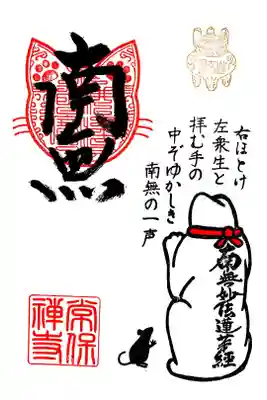 南無
右ほとけ
左衆生と
拝む手の
中ぞゆかしき
南無の一声
南無妙法蓮華経
常保
禅寺